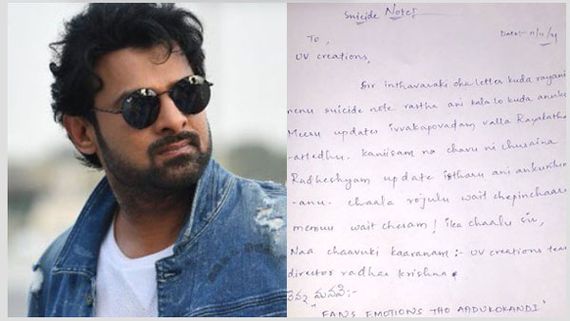 Suicide Note:
Date:- 11/11/21
To,
UV creations,
Sir inthavaraki oka letter kuda rayani
nenu suicide note rastha ani kala lo kuda anuko
Meeru updates ivvakapovadam valla Rayakatha
-atledhu. kaniisam na chavu ni chusaina
Radheshyam update istharu ani ankuntun
-anu. chaala rojulu wait chepinchaaru
memuu wait chesam! ika chaalu sir,
Naa chaavuki kaaranam:- UV creations team
director radhae krishna.
మనవి:-
"FANS EMOTIONS THO AADUKOKANDI"